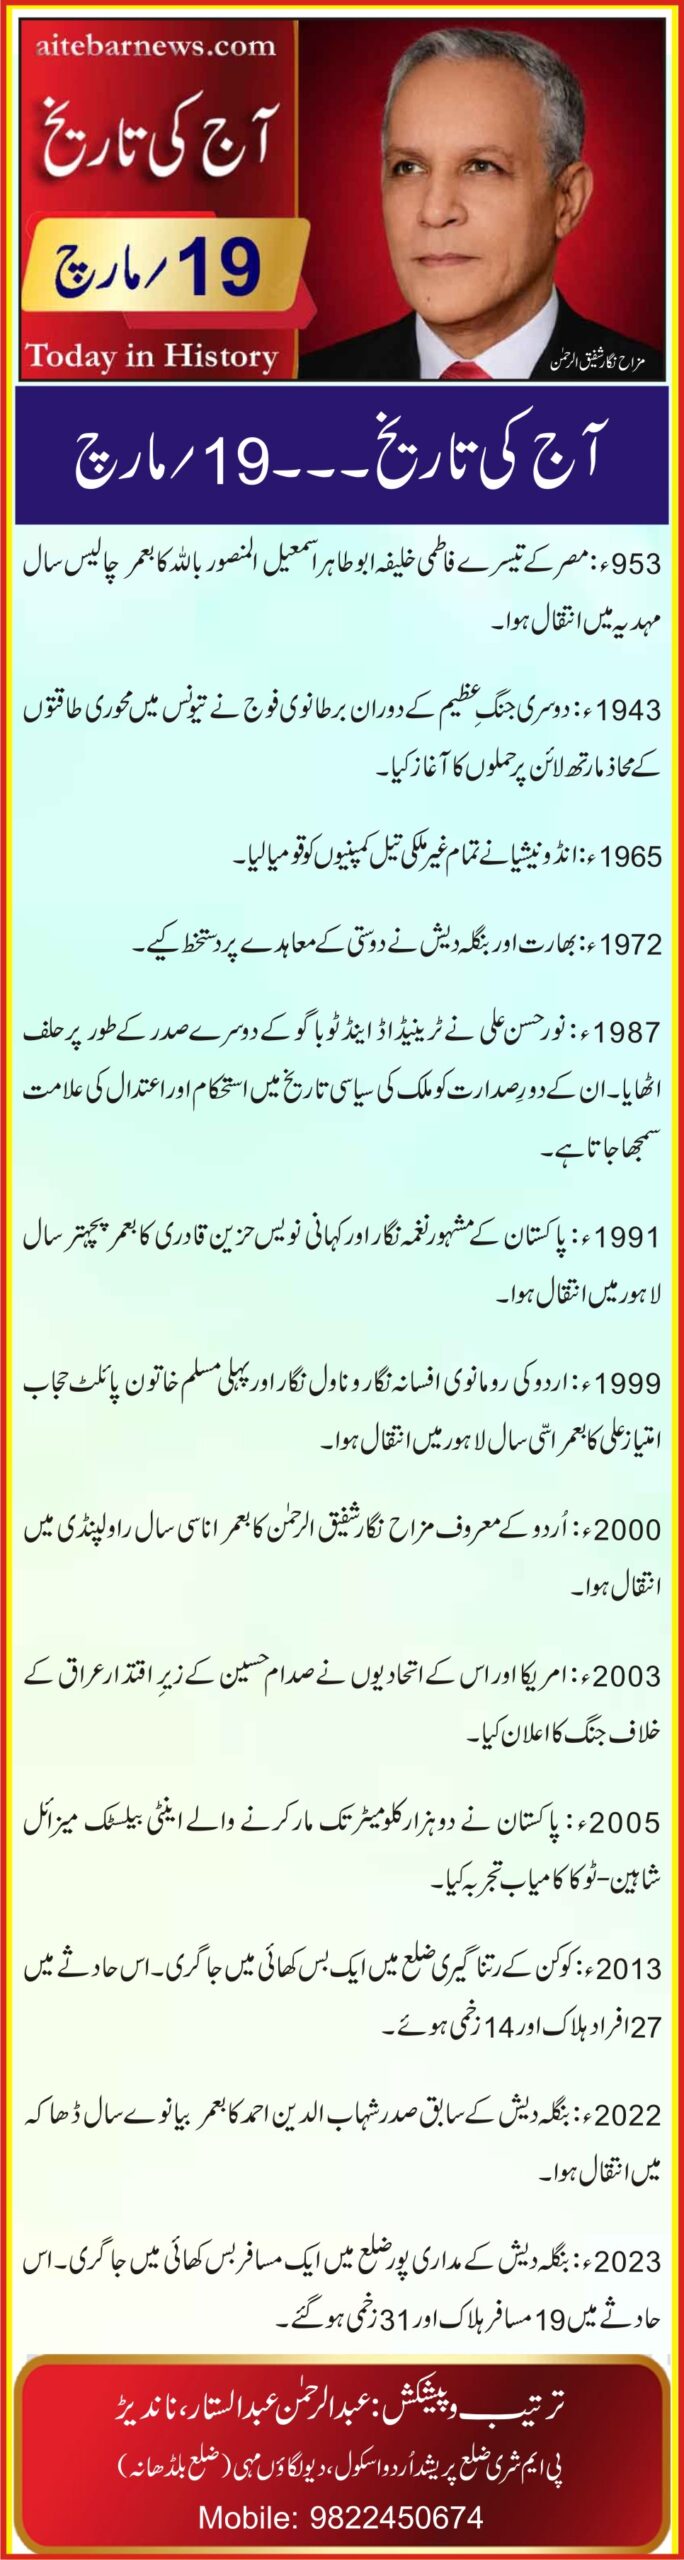 aitebarnews.com
آج کی تاریخ
19/مارچ
Today in History
مزاح نگار شفیق الرحمٰن
آج کی تاریخ۔۔۔19/مارچ
953ء: مصر کے تیسرے فاطمی خلیفہ ابوطاہر اسمٰعیل المنصور باللہ کا بعمر چالیس سال
مہدیہ میں انتقال ہوا۔
1943ء: دوسری جنگِ عظیم کے دوران برطانوی فوج نے تیونس میں محوری طاقتوں
کے محاذ مارتھ لائن پر حملوں کا آغاز کیا۔
1965ء: انڈونیشیا نے تمام غیر ملکی تیل کمپنیوں کو قومیا لیا۔
1972ء: بھارت اور بنگلہ دیش نے دوستی کے معاہدے پر دستخط کیے۔
1987ء: نور حسن علی نے ٹرینیڈاڈ اینڈ ٹوباگو کے دوسرے صدر کے طور پر حلف
اٹھایا۔ ان کے دورِ صدارت کو ملک کی سیاسی تاریخ میں استحکام اور اعتدال کی علامت
سمجھا جاتا ہے۔
1991ء: پاکستان کے مشہور نغمہ نگار اور کہانی نویس حزین قادری کا بعمر پچھتر سال
لاہور میں انتقال ہوا۔
1999ء: اردو کی رومانوی افسانہ نگار و ناول نگار اور پہلی مسلم خاتون پائلٹ حجاب
امتیاز علی کا بعمر اسّی سال لاہور میں انتقال ہوا۔
2000ء: اُردو کے معروف مزاح نگار شفیق الرحمٰن کا بعمر اناسی سال راولپنڈی میں
انتقال ہوا۔
2003ء: امریکا اور اس کے اتحادیوں نے صدام حسین کے زیرِ اقتدار عراق کے
خلاف جنگ کا اعلان کیا۔
2005ء: پاکستان نے دو ہزار کلومیٹر تک مار کرنے والے اینٹی بیلسٹک میزائل
شاہین-ٹو کا کامیاب تجربہ کیا۔
2013ء: کوکن کے رتناگیری ضلع میں ایک بس کھائی میں جاگری۔ اس حادثے میں
27 افراد ہلاک اور 14 زخمی ہوئے۔
2022ء: بنگلہ دیش کے سابق صدر شہاب الدین احمد کا بعمر بیانوے سال ڈھاکہ
میں انتقال ہوا۔
2023ء: بنگلہ دیش کے مداری پور ضلع میں ایک مسافر بس کھائی میں جاگری۔ اس
حادثے میں 19 مسافر ہلاک اور 31 زخمی ہوگئے۔
ترتیب و پیشکش: عبدالرحمٰن عبدالستار، ناندیڑ
پی ایم شری ضلع پریشد اُردو اسکول، دیولگاؤں مہی (ضلع بلڈھانہ)
Mobile: 9822450674